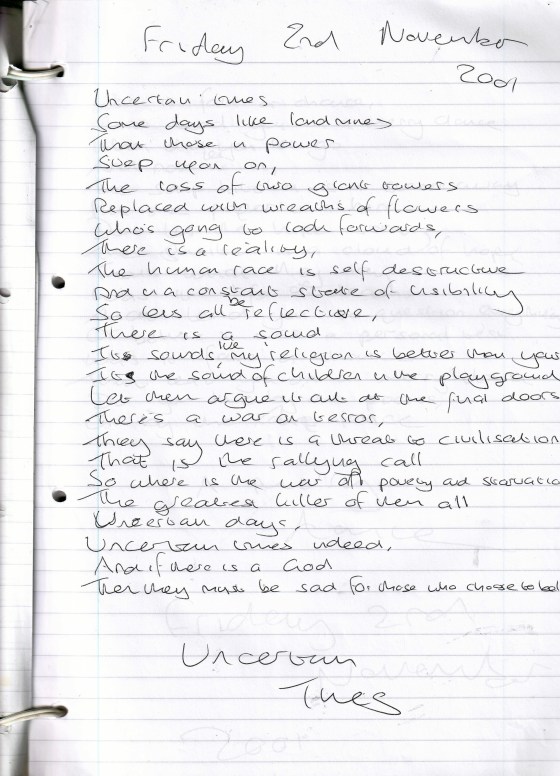 Friday 2nd November
2001
Uncertain times
Some days like landmines
That those in power
Step upon on,
The loss of two giant towers
Replaced with wreaths of flowers
Who's going to look forwards,
There is a reality,
The human race is self destructive
And in a constant state of
So lets all be reflective,
There is a sound
Its sounds like my religion is better than your
It's the sound of children in the playground
Let them argue it out at the final doors
There's a war on terror,
They say there is a threat to civilisation
That is the rallying call
So where is the war on poverty and starvation
The greatest killer of them all
Uncertain days,
Uncertain times indeed,
And if there is a God
Then they must be sad for those who choose to
Uncertain
Times